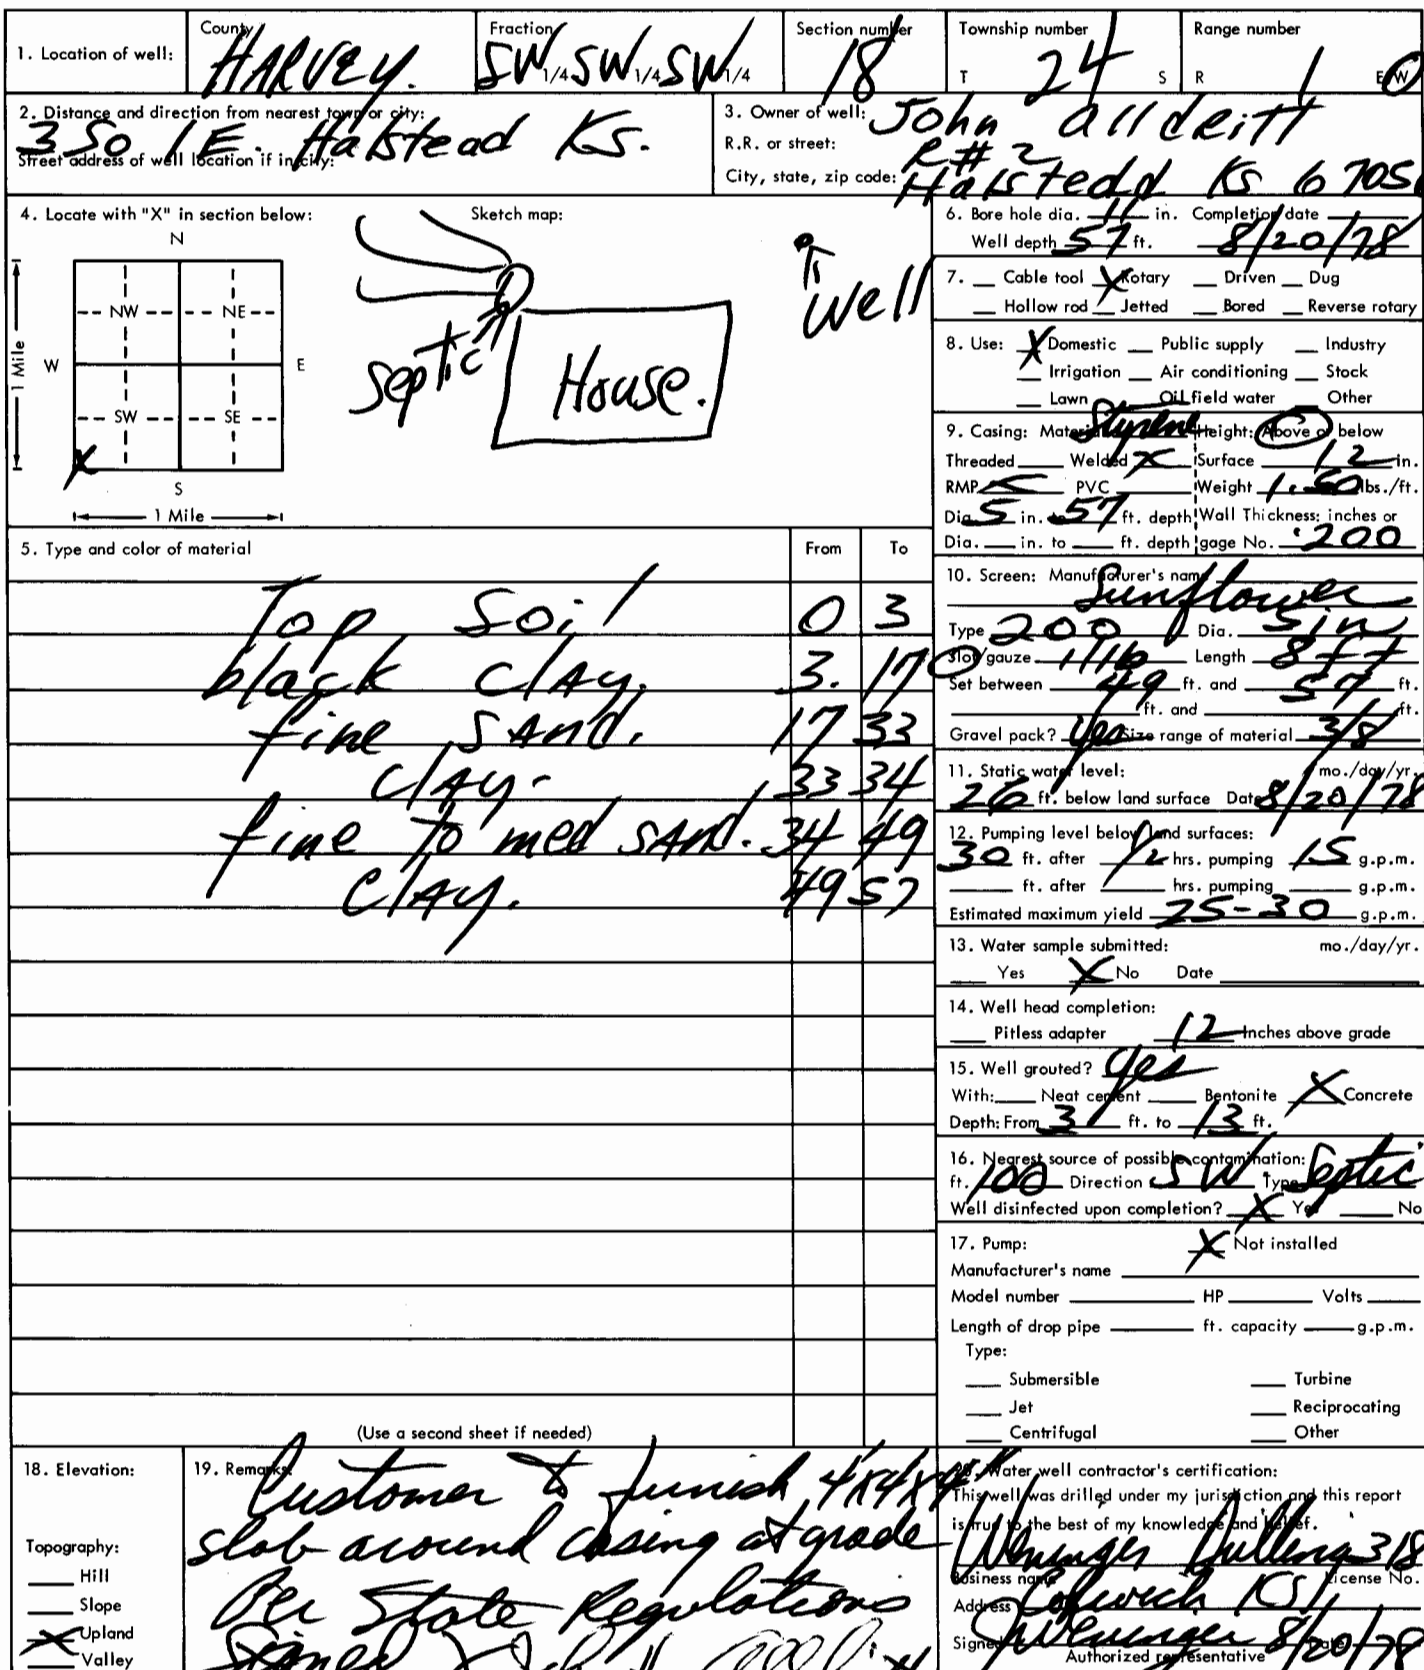 1. Location of well: County HARVEY. Fraction SW 1/4 SW 1/4 SW 1/4 Section number 18 Township number T 24 S Range number R 1 E W
2. Distance and direction from nearest town or city:
3 So 1 E. Halstead Ks.
Street address of well location if in city:
3. Owner of well: John Alldritt
R.R. or street: R#2
City, state, zip code: Halstedd Ks 6705
4. Locate with "X" in section below:
N
NW NE
W E
SW SE
X
S
1 Mile
1 Mile
Sketch map:
septic
House.
well
5. Type and color of material From To
Top Soil 0 3
black Clay. 3. 17
fine SAnd. 17 33
Clay- 33 34
fine To med SAnd. 34 49
Clay. 49 57
(Use a second sheet if needed)
6. Bore hole dia. 11 in. Completion date
Well depth 57 ft. 8/20/78
7. Cable tool X Rotary Driven Dug
Hollow rod Jetted Bored Reverse rotary
8. Use: X Domestic Public supply Industry
Irrigation Air conditioning Stock
Lawn Oil field water Other
9. Casing: Material Styrene Height: Above or below
Threaded Welded X Surface 12 in.
RMP X PVC Weight 1.50 lbs./ft.
Dia. 5 in. to 57 ft. depth Wall Thickness: inches or
Dia. in. to ft. depth gage No. .200
10. Screen: Manufacturer's name
Sunflower
Type 200 Dia. 5 in
Slot/gauze 1/16 Length 8 ft
Set between 49 ft. and 57 ft.
ft. and ft.
Gravel pack? Yes Size range of material 3/8
11. Static water level: mo./day/yr.
26 ft. below land surface Date 8/20/78
12. Pumping level below land surfaces:
30 ft. after 1/2 hrs. pumping 15 g.p.m.
ft. after hrs. pumping g.p.m.
Estimated maximum yield 25-30 g.p.m.
13. Water sample submitted: mo./day/yr.
Yes X No Date
14. Well head completion:
Pitless adapter 12 Inches above grade
15. Well grouted? Yes
With: Neat cement Bentonite X Concrete
Depth: From 3 ft. to 13 ft.
16. Nearest source of possible contamination:
ft. 100 Direction SW Type Septic
Well disinfected upon completion? X Yes No
17. Pump: X Not installed
Manufacturer's name
Model number HP Volts
Length of drop pipe ft. capacity g.p.m.
Type:
Submersible Turbine
Jet Reciprocating
Centrifugal Other
18. Elevation:
Topography:
Hill
Slope
X Upland
Valley
19. Remarks:
Customer to furnish 4x4x4"
slab around casing at grade
Per State Regulations
Signed John Alldritt
Water well contractor's certification:
This well was drilled under my jurisdiction and this report
is true to the best of my knowledge and belief.
Weninger Drilling 318
Business name License No.
Address Colwich KS
Signed Weninger Date 8/20/78
Authorized representative